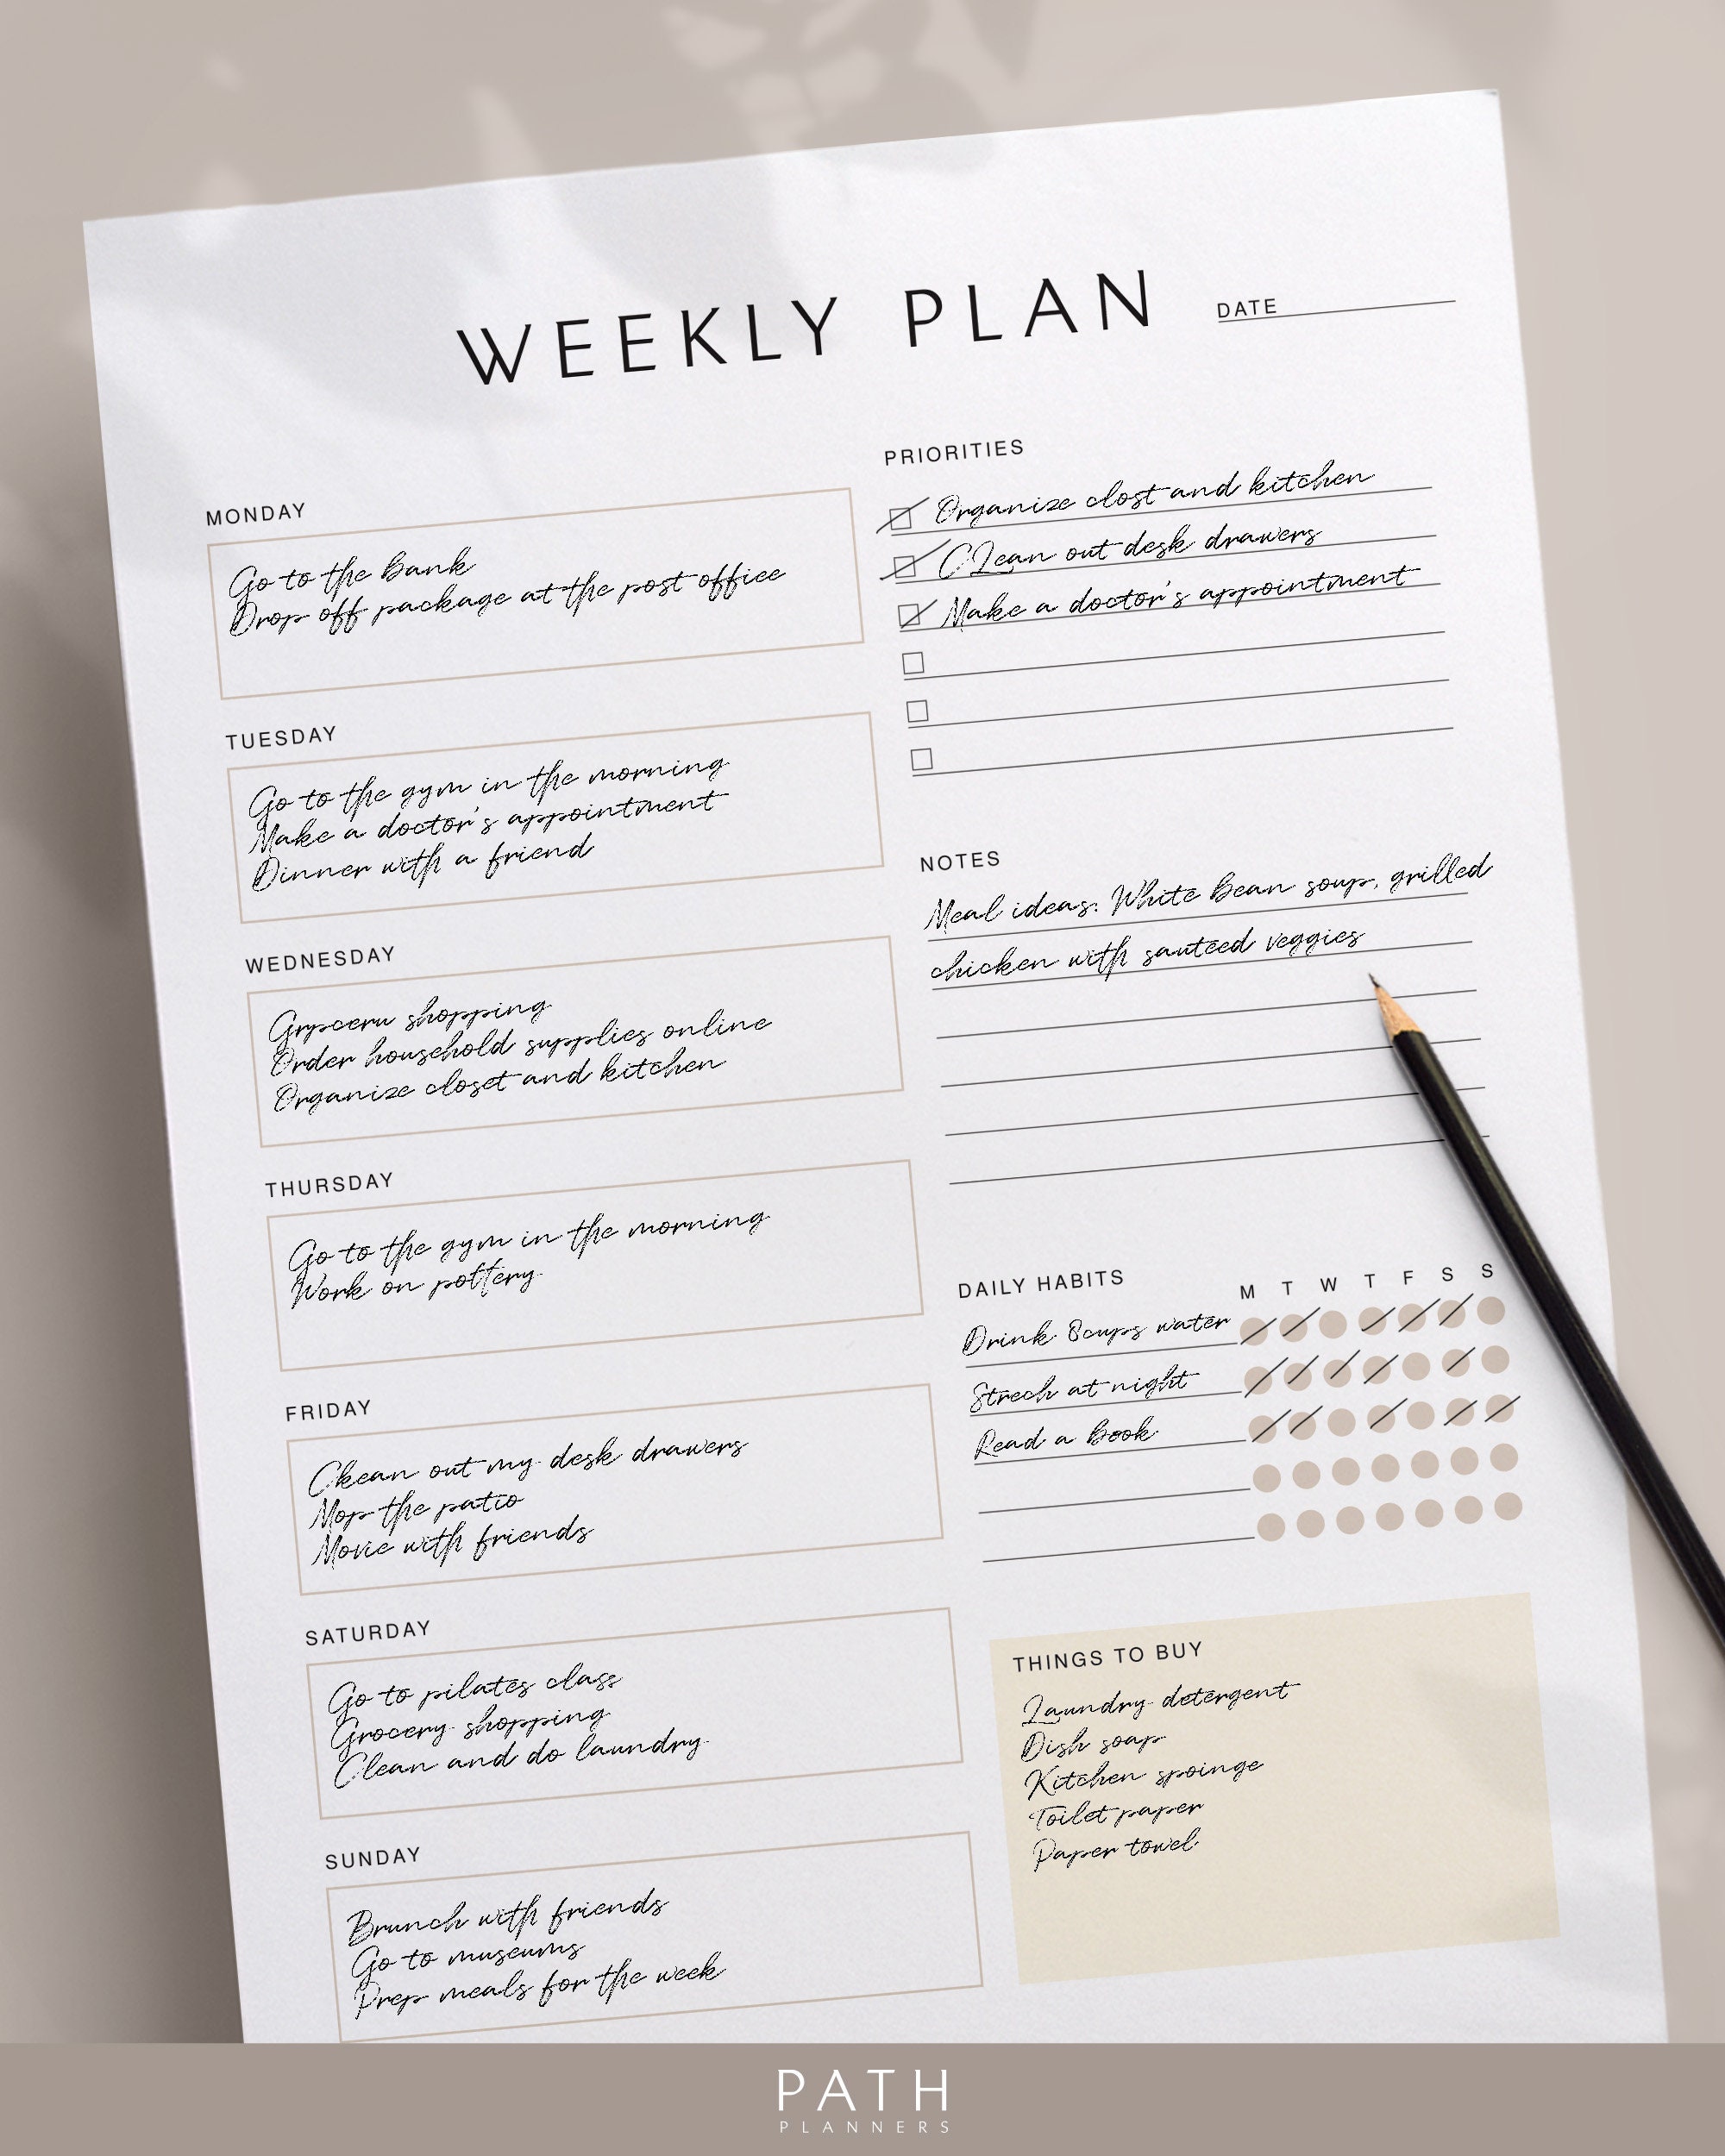 WEEKLY PLAN
DATE
MONDAY
Go to the bank
Drop off package at the post office
TUESDAY
Go to the gym in the morning
Make a doctor's appointment
Dinner with a friend
WEDNESDAY
Grpceru shopping
Order household supplies online
Organize closet and kitchen
THURSDAY
Go to the gym in the morning
Work on pottery
FRIDAY
Ckean out my desk drawers
Mop the patio
Movie with friends
SATURDAY
Go to pilates class
Grocery shopping
Clean and do laundry
SUNDAY
Brunch with friends
Go to museums
Prep meals for the week
PRIORITIES
Organize clost and kitchen
CLean out desk drawers
Make a doctor's appointment
NOTES
Meal ideas: White bean soup, grilled
chicken with sauteed veggies
DAILY HABITS M T W T F S S
Drink 8cups water
Strech at night
Read a book
THINGS TO BUY
Laundry detergent
Dish soap
Kitchen spoinge
Toilet paper
Paper towel
PATH
PLANNERS